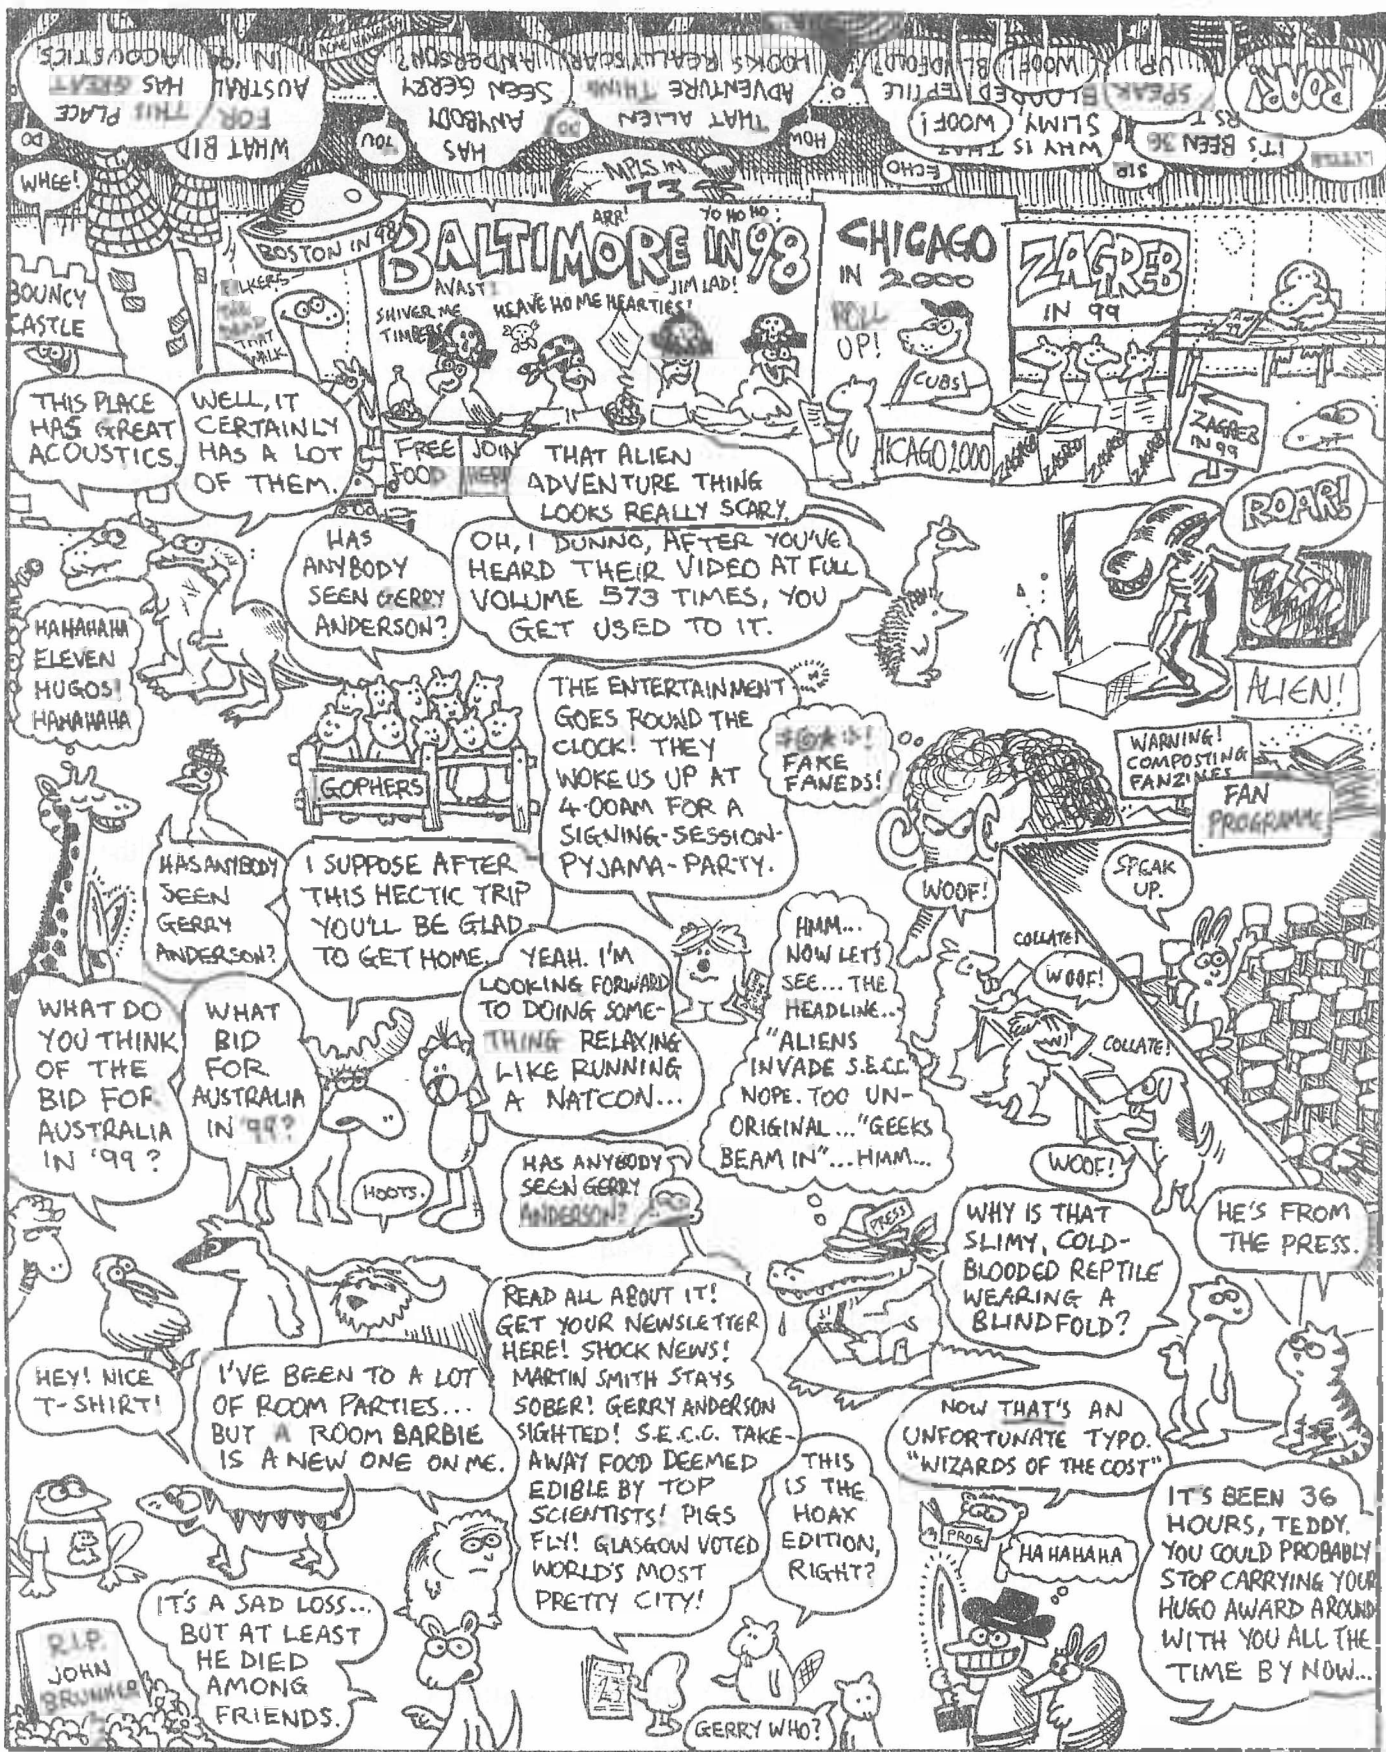 THIS PLACE
HAS GREAT
ACOUSTICS
WHAT BID
FOR
AUSTRALIA
IN '99
ACME HANGAR
HAS
ANYBODY
SEEN GERRY
ANDERSON?
THAT ALIEN
ADVENTURE THING
LOOKS REALLY SCARY
WHY IS THAT
SLIMY,
BLOODED REPTILE
BLINDFOLD?
WOOF!
WOOF!
SPEAK
UP
IT'S BEEN 36
ROAR!
LITTLE
DO
YOU
DO
HOW
ECHO
SIR
WHEE!
MPLS IN
73
BOSTON IN 98
BALTIMORE IN 98
ARR!
YO HO HO
AVAST!
JIM LAD!
SHIVER ME
TIMBERS
HEAVE HO ME HEARTIES!
CHICAGO
IN 2000
ROLL
UP!
CUBS
ZAGREB
IN 99
BOUNCY
CASTLE
FILKERS
THE
DEAD
THAT
WALK
FREE
FOOD
JOIN
HERE
CHICAGO 2000
ZAGREB
ZAGREB
ZAGREB
ZAGREB
ZAGREB
IN 99
THIS PLACE
HAS GREAT
ACOUSTICS.
WELL, IT
CERTAINLY
HAS A LOT
OF THEM.
THAT ALIEN
ADVENTURE THING
LOOKS REALLY SCARY.
OH, I DUNNO, AFTER YOU'VE
HEARD THEIR VIDEO AT FULL
VOLUME 573 TIMES, YOU
GET USED TO IT.
ROAR!
ALIEN!
HAS
ANYBODY
SEEN GERRY
ANDERSON?
HAHAHAHA
ELEVEN
HUGOS!
HAHAHAHA
GOPHERS
THE ENTERTAINMENT
GOES ROUND THE
CLOCK! THEY
WOKE US UP AT
4.00AM FOR A
SIGNING-SESSION-
PYJAMA-PARTY.
FAKE
FANEDS!
WARNING!
COMPOSTING
FANZINES
FAN
PROGRAMME
SPEAK
UP.
HAS ANYBODY
SEEN
GERRY
ANDERSON?
I SUPPOSE AFTER
THIS HECTIC TRIP
YOU'LL BE GLAD
TO GET HOME.
YEAH. I'M
LOOKING FORWARD
TO DOING SOME-
THING RELAXING
LIKE RUNNING
A NATCON...
HMM...
NOW LET'S
SEE... THE
HEADLINE...
"ALIENS
INVADE S.E.C.C."
NOPE. TOO UN-
ORIGINAL... "GEEKS
BEAM IN"... HMM...
WOOF!
COLLATE!
WOOF!
COLLATE!
WOOF!
WHAT DO
YOU THINK
OF THE
BID FOR
AUSTRALIA
IN '99?
WHAT
BID
FOR
AUSTRALIA
IN '99?
HOOTS.
HAS ANYBODY
SEEN GERRY
ANDERSON?
PRESS
WHY IS THAT
SLIMY, COLD-
BLOODED REPTILE
WEARING A
BLINDFOLD?
HE'S FROM
THE PRESS.
HEY! NICE
T-SHIRT!
I'VE BEEN TO A LOT
OF ROOM PARTIES...
BUT A ROOM BARBIE
IS A NEW ONE ON ME.
READ ALL ABOUT IT!
GET YOUR NEWSLETTER
HERE! SHOCK NEWS!
MARTIN SMITH STAYS
SOBER! GERRY ANDERSON
SIGHTED! S.E.C.C. TAKE-
AWAY FOOD DEEMED
EDIBLE BY TOP
SCIENTISTS! PIGS
FLY! GLASGOW VOTED
WORLD'S MOST
PRETTY CITY!
THIS
IS THE
HOAX
EDITION,
RIGHT?
NOW THAT'S AN
UNFORTUNATE TYPO.
"WIZARDS OF THE COST"
PROG
HA HAHAHA
IT'S BEEN 36
HOURS, TEDDY.
YOU COULD PROBABLY
STOP CARRYING YOUR
HUGO AWARD AROUND
WITH YOU ALL THE
TIME BY NOW...
R.I.P.
JOHN
BRUNNER
IT'S A SAD LOSS...
BUT AT LEAST
HE DIED
AMONG
FRIENDS.
23
GERRY WHO?